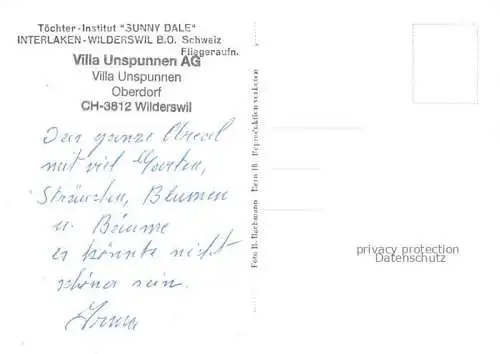 Töchter-Institut "SUNNY DALE"
INTERLAKEN-WILDERSWIL B.O. Schweiz
Fliegeraufn.
Villa Unspunnen AG
Villa Unspunnen
Oberdorf
CH-3812 Wilderswil
Das ganze Areal
mit viel Garten,
Sträucher, Blumen
u. Bäume
es könnte nicht
schöner sein.
Foto H. Bachmann Bern 18 Reproduktion verboten
privacy protection
Datenschutz